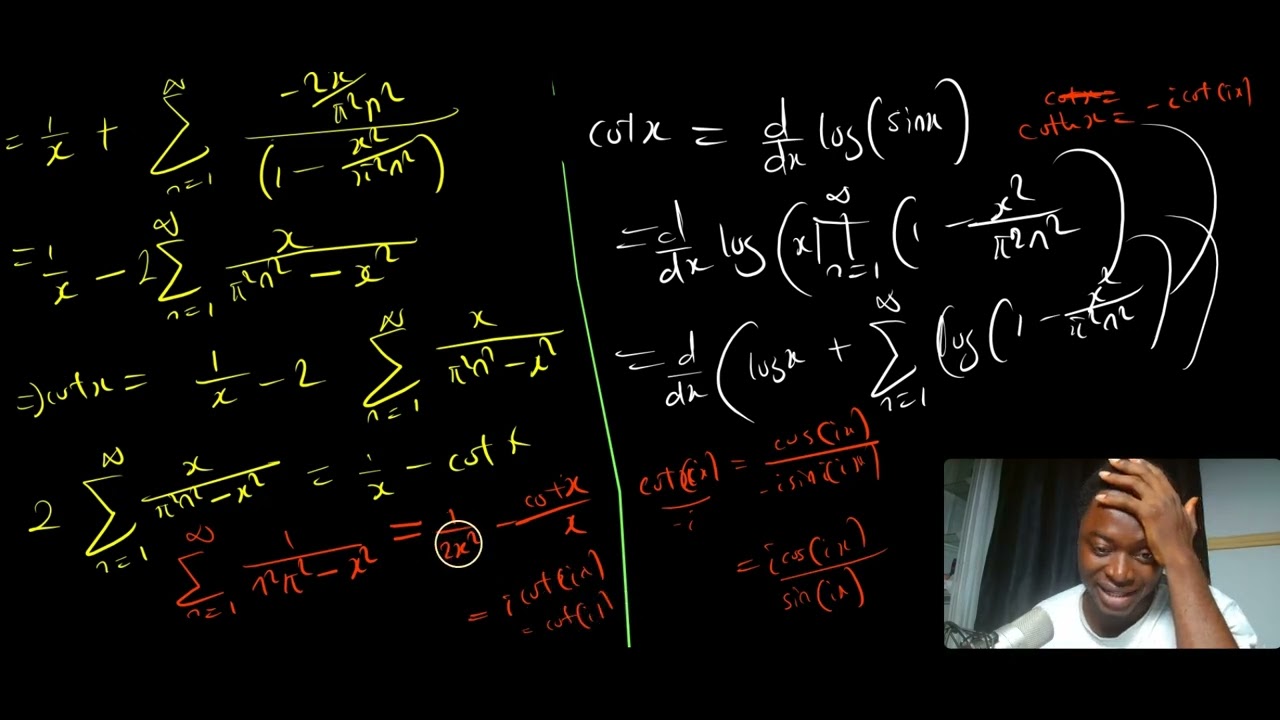 = 1/x + ∑_{n=1}^{∞} (-2x/π²n²) / (1 - x²/π²n²)
= 1/x - 2 ∑_{n=1}^{∞} x/(π²n² - x²)
=> cot x = 1/x - 2 ∑_{n=1}^{∞} x/(π²n² - x²)
2 ∑_{n=1}^{∞} x/(π²n² - x²) = 1/x - cot x
∑_{n=1}^{∞} 1/(n²π² - x²) = 1/2x² - cot x/x
= i cot(ix)
= cot(i)
cot x = d/dx log(sin x)
= d/dx log(x ∏_{n=1}^{∞} (1 - x²/π²n²))
= d/dx (log x + ∑_{n=1}^{∞} (log(1 - x²/π²n²)))
cot x =
coth x = - i cot(ix)
cot(ix)/-i = cos(ix)/-i sin(ix)
= i cos(ix)/sin(ix)